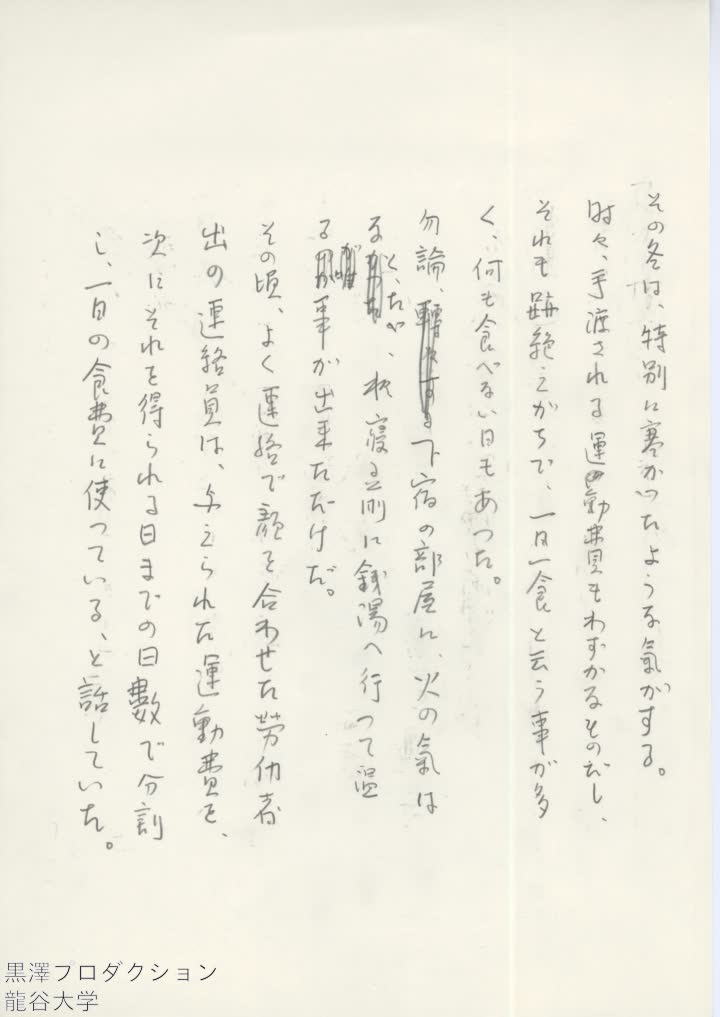 その冬は、特別に寒かつたような氣がする。
時々、手渡される運動費もわずかなものだし、
それも跡絶えがちで、一日一食と云う事が多
く、何も食べない日もあつた。
勿論、下宿の部屋に、火の氣は
なく、たゞ、寝る前に銭湯へ行つて温
る事が出来ただけだ。
その頃、よく連絡で顔を合わせた労仂者
出の連絡員は、与えられた運動費を、
次にそれを得られる日までの日數で分割
し、一日の食費に使つている、と話していた。
黒澤プロダクション
龍谷大学